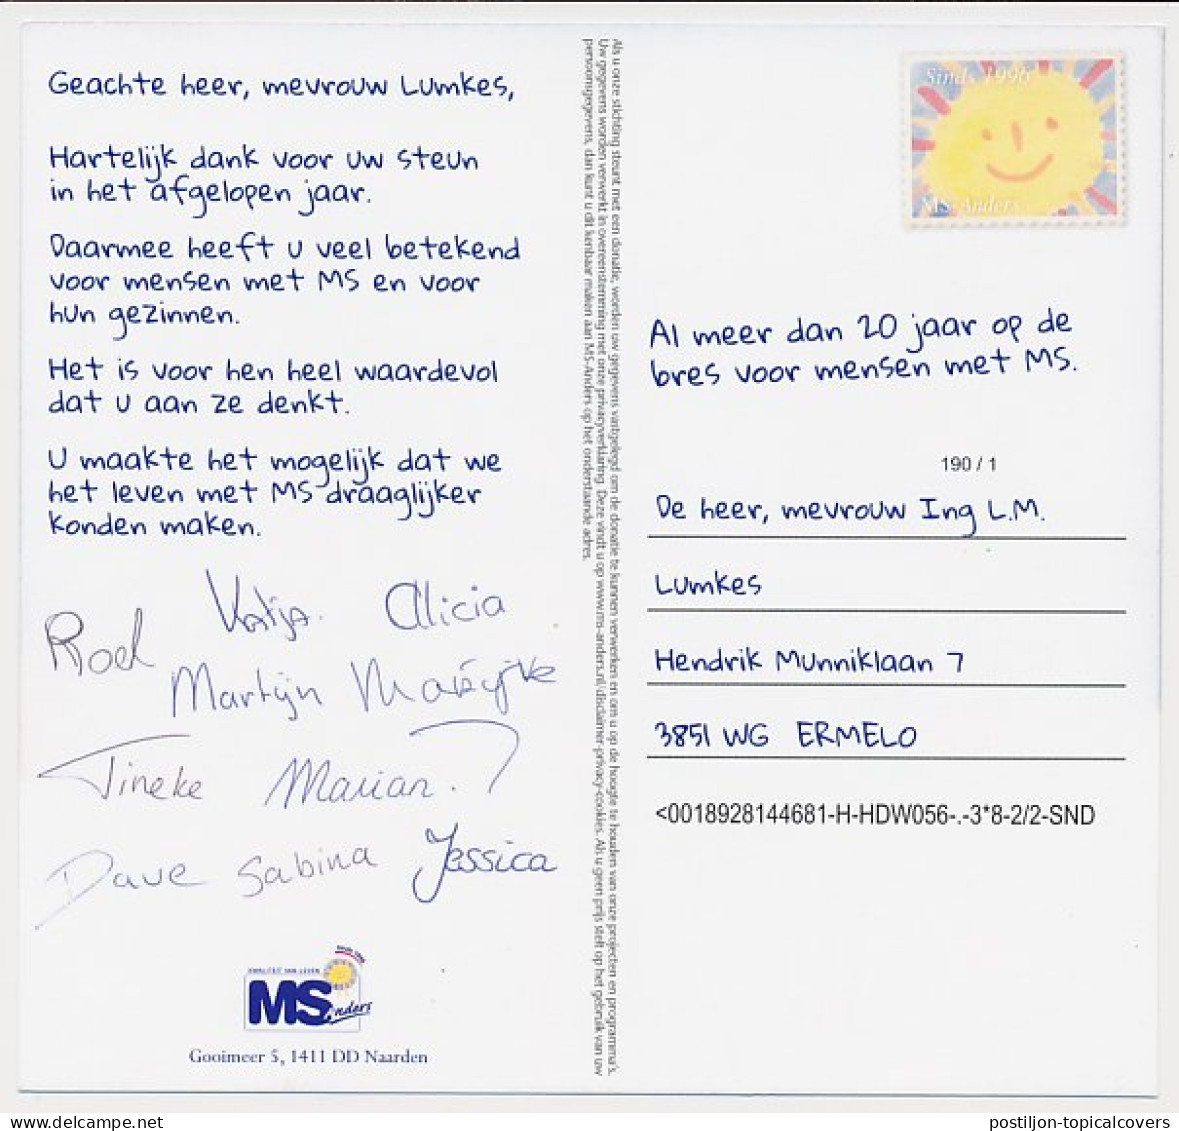 Geachte heer, mevrouw Lumkes,
Hartelijk dank voor uw steun
in het afgelopen jaar.
Daarmee heeft u veel betekend
voor mensen met MS en voor
hun gezinnen.
Het is voor hen heel waardevol
dat u aan ze denkt.
U maakte het mogelijk dat we
het leven met MS draaglijker
konden maken.
Roel Katja. Alicia
Martijn Marijke
Tineke Marian.
Dave Sabina Jessica
Sinds 1996
KWALITEIT VAN LEVEN
MS Anders
Gooimeer 5, 1411 DD Naarden
Als u onze stichting steunt met een donatie, worden uw gegevens vastgelegd om de donatie te kunnen verwerken en om u op de hoogte te houden van onze projecten en programma's.
Uw gegevens worden verwerkt in overeenstemming met onze privacyverklaring. Deze vindt u op www.ms-anders.nl/disclaimer-privacy-cookies. Als u geen prijs stelt op het gebruik van uw
persoonsgegevens, dan kunt u dit kenbaar maken aan MS-Anders op het onderstaande adres.
Sinds 1996
MS-Anders
Al meer dan 20 jaar op de
bres voor mensen met MS.
190 / 1
De heer, mevrouw Ing L.M.
Lumkes
Hendrik Munniklaan 7
3851 WG ERMELO
<0018928144681-H-HDW056-.-3*8-2/2-SND
postiljon-topicalcovers